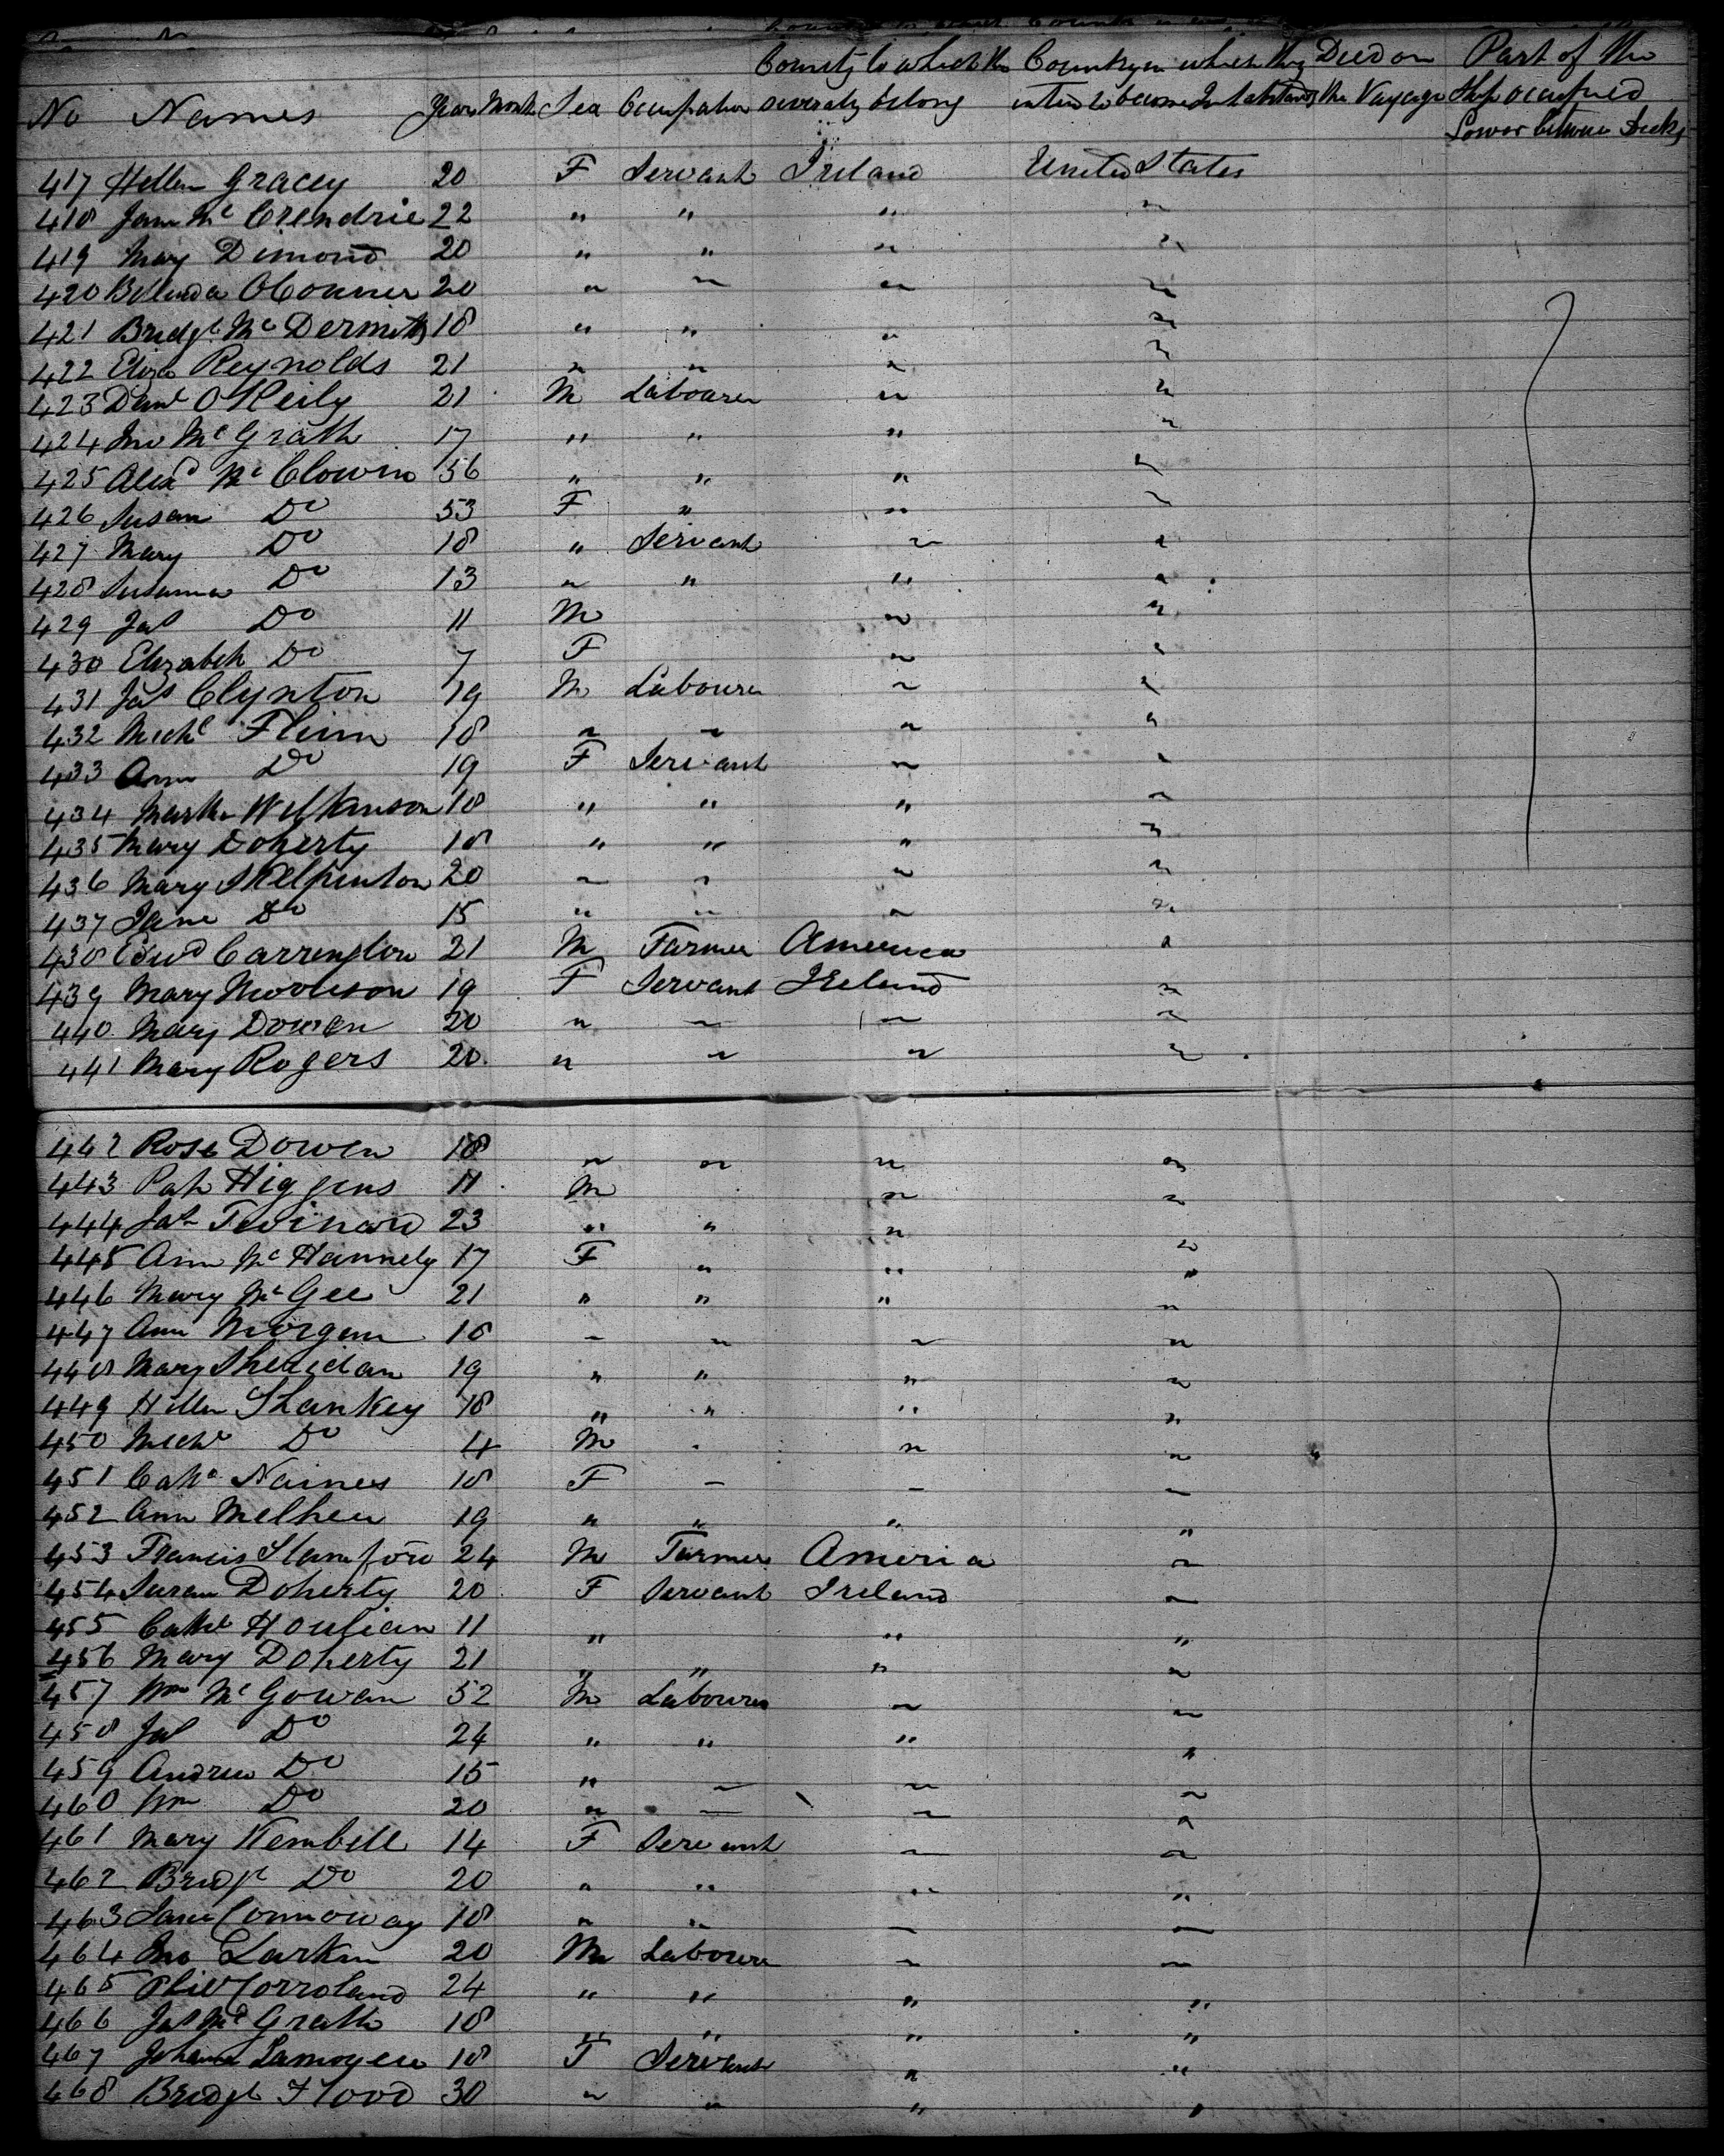 County to which they Country in which they Died on Part of the
No Names Years Months Sex Occupation severally belong intend to become Inhabitants the Voyage Ship occupied
Lower between Decks
417 Hellen Gracey 20 F Servant Ireland United States
418 Jane Mc Crendrie 22 " " " "
419 Mary Dimond 20 " " " "
420 Bellinda OConner 20 " " " "
421 Bridgt Mc Dermitt 18 " " " "
422 Eliza Reynolds 21 " " " "
423 Danl O Reily 21 M Labourer " "
424 Jno Mc Grath 17 " " " "
425 Alexd Mc Clowin 56 " " " "
426 Susan Do 53 F " " "
427 Mary Do 18 " Servant " "
428 Susanna Do 13 " " " "
429 Jas Do 11 M " "
430 Elizabeth Do 7 F " "
431 Jas Clynton 19 M Labourer " "
432 Michl Flinn 18 " " " "
433 Ann Do 19 F Servant " "
434 Martha Wilkinson 18 " " " "
435 Mary Doherty 18 " " " "
436 Mary Skelpinton 20 " " " "
437 Jane Do 15 " " " "
438 Edwd Carrington 21 M Farmer America "
439 Mary Morrison 19 F Servant Ireland "
440 Mary Dowen 20 " " " "
441 Mary Rogers 20 " " " "
442 Rose Dowen 18 " " " "
443 Pat Higgens 11 M " "
444 Jas Twinard 23 " " " "
445 Ann Mc Hannely 17 F " " "
446 Mary Mc Gee 21 " " " "
447 Ann Morgan 16 " " " "
448 Mary Sheridan 19 " " " "
449 Hellen Shankey 18 " " " "
450 Michl Do 4 M " "
451 Cathe Naines 18 F " " "
452 Ann Melhen 19 " " " "
453 Francis Stamford 24 M Farmer America "
454 Susan Doherty 20 F Servant Ireland "
455 Cathe Houlian 11 " " "
456 Mary Doherty 21 " " " "
457 Wm Mc Gowan 52 M Labourer " "
458 Jas Do 24 " " " "
459 Andrew Do 15 " " " "
460 Wm Do 20 " " " "
461 Mary Kembell 14 F Servant " "
462 Bridgt Do 20 " " " "
463 Jane Connoway 18 " " " "
464 Jno Larkin 20 M Labourer " "
465 Phil Corroland 24 " " " "
466 Jas Mc Grath 18 " " " "
467 Johana Lamoyen 18 F Servant " "
468 Bridgt Flood 30 " " " "